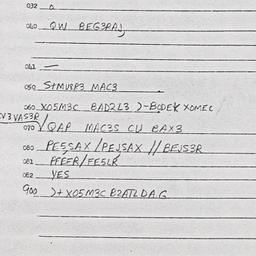 032 a
040 QW BEG3RAJ
041 —
050 S+MUSP3 MAC3
060 XO5M3C BAD2L3 )-BODEX XOMEC
CV3VAS3R/
070 √QAP MAC3S CU BAX3
080 PE5SAX/PEJSAX//BEJS3R
081 PFEFR/FE5LR
082 YES
900 )+XO5M3C B2ATLDAG